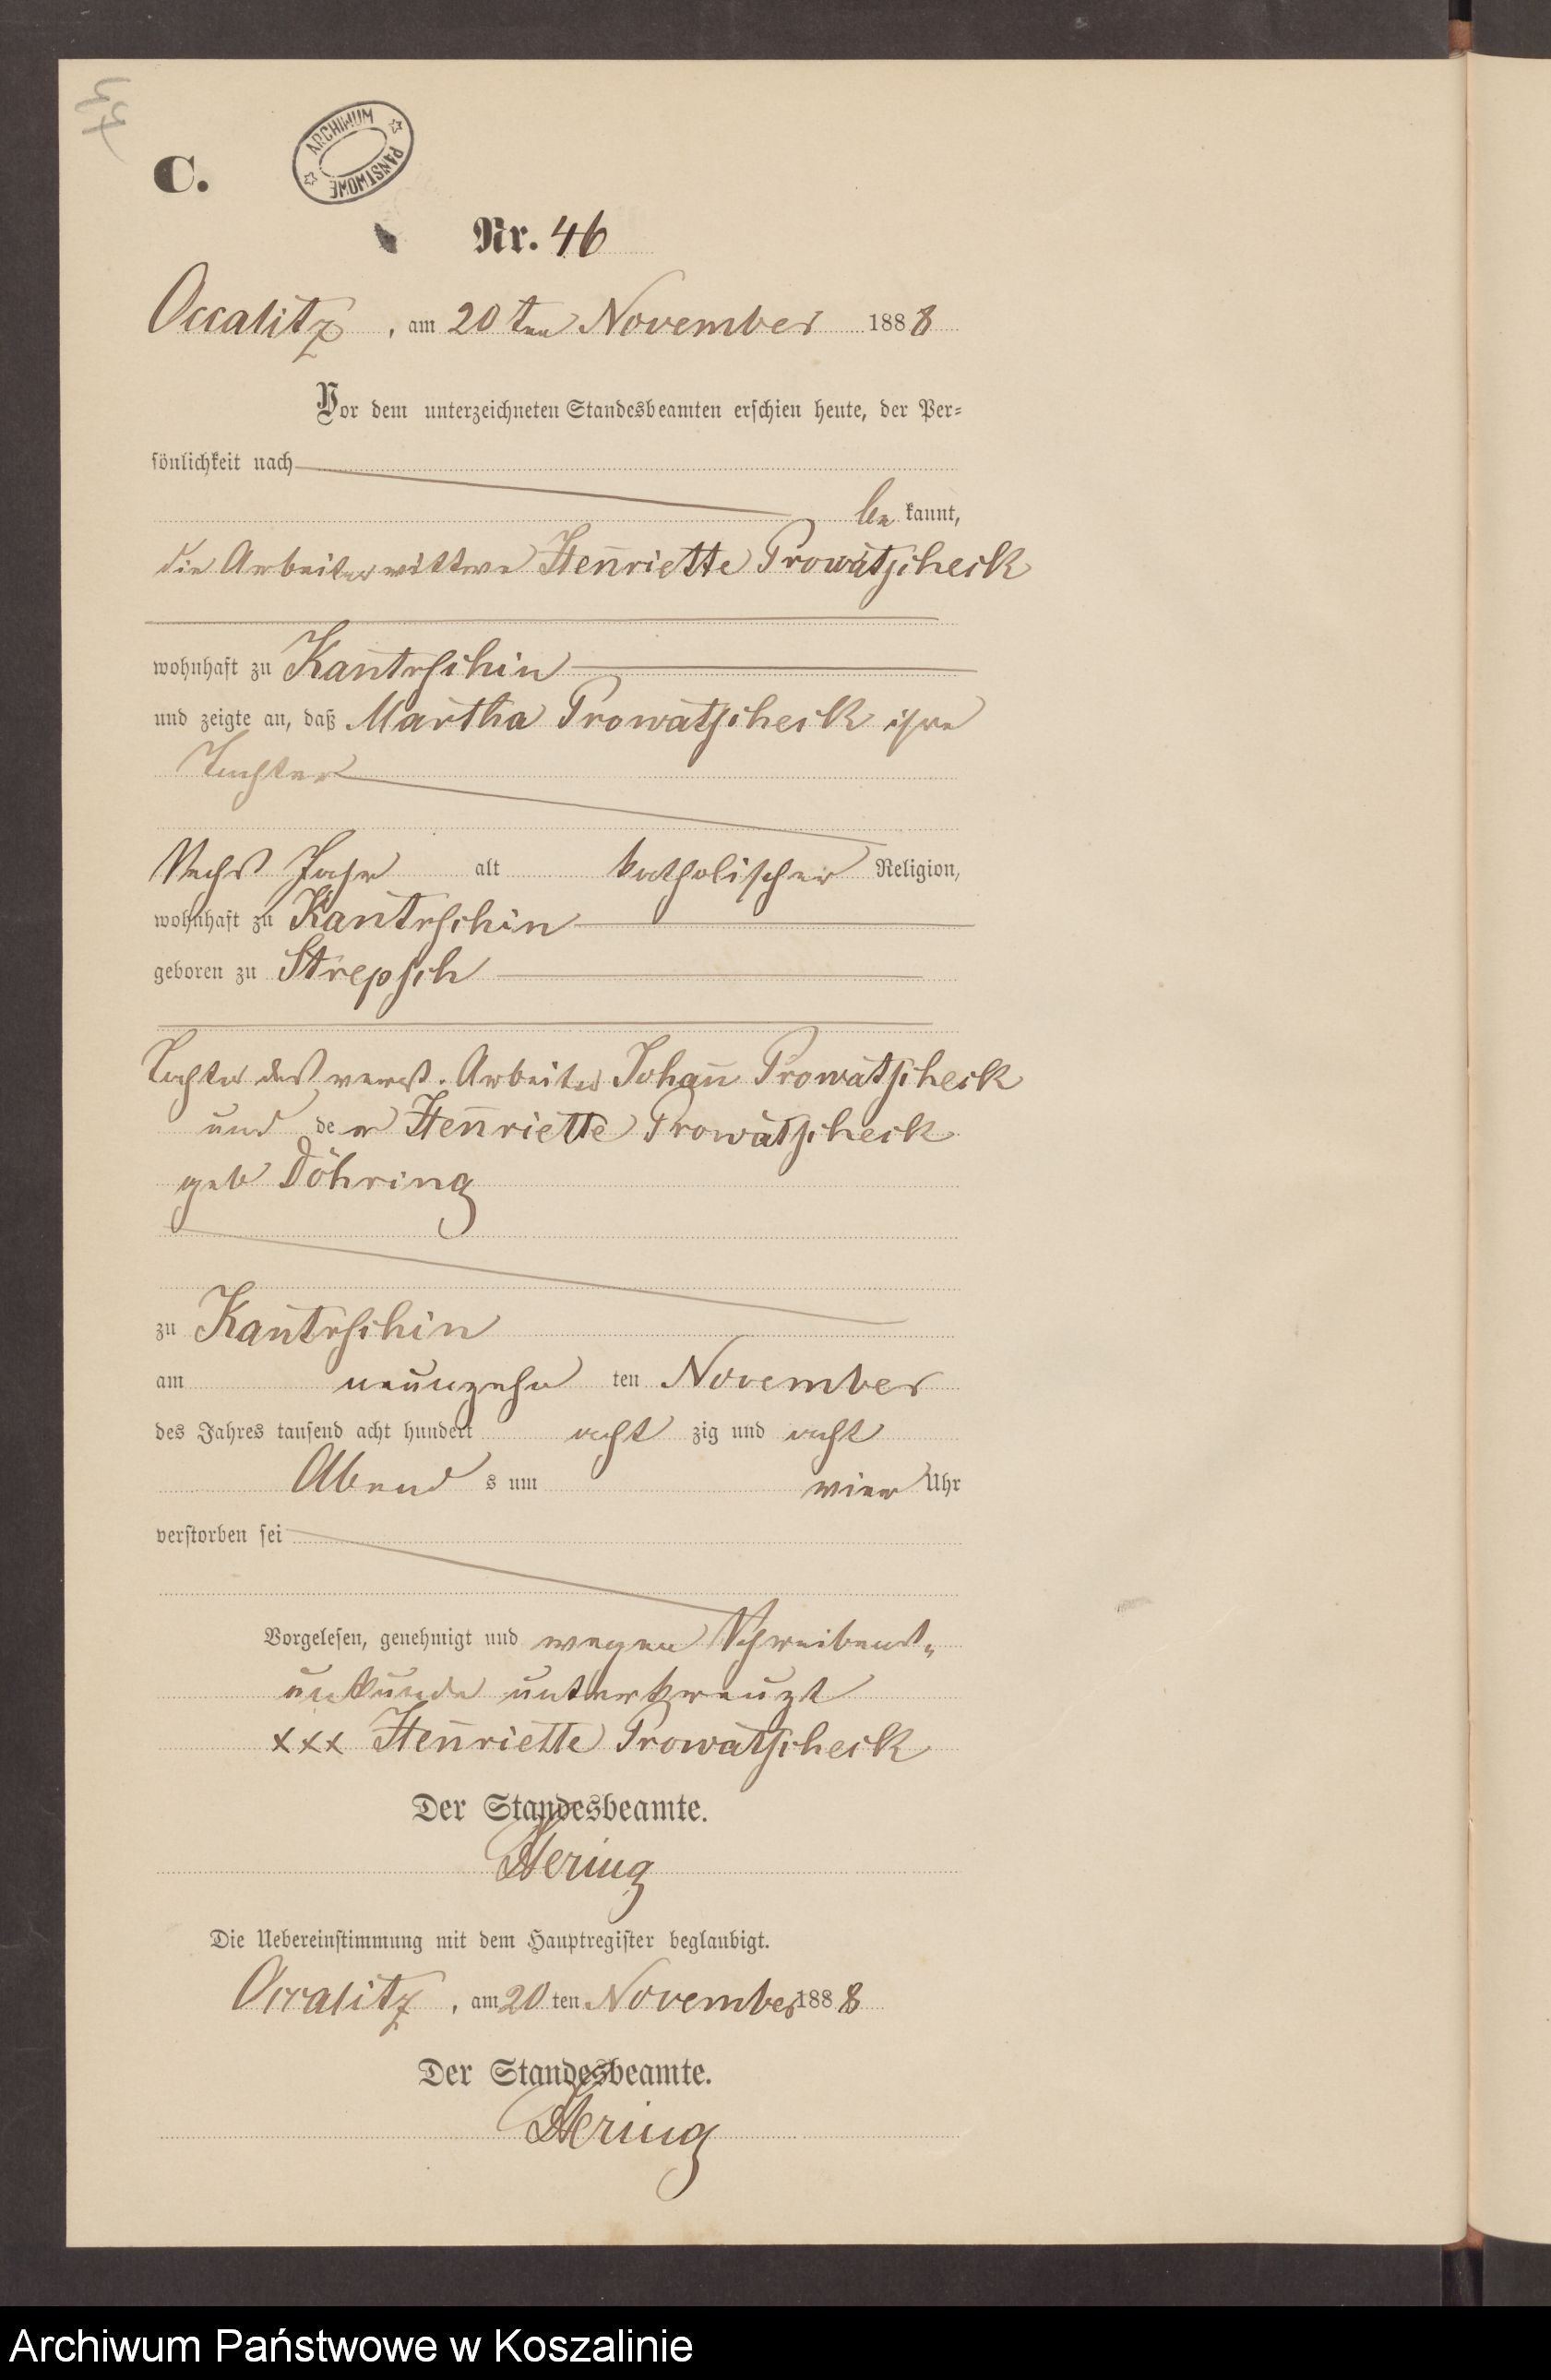 57
C.
ARCHIWUM PAŃSTWOWE
Nr. 46
Occalitz, am 20 ten November 1888
Vor dem unterzeichneten Standesbeamten erschien heute, der Per-
sönlichkeit nach
be kannt,
die Arbeiterwittwe Henriette Prowatscheck
wohnhaft zu Kantrschin
und zeigte an, daß Martha Prowatscheck ihre
Tochter
Sechs Jahr alt katholischer Religion,
wohnhaft zu Kantrschin
geboren zu Strepsch
Tochter des verst. Arbeiter Johann Prowatscheck
und der Henriette Prowatscheck
geb Döhring
zu Kantrschin
am neunzehn ten November
des Jahres tausend acht hundert acht zig und acht
Abend s um vier Uhr
verstorben sei
Vorgelesen, genehmigt und wegen Schreibens-
unkunde unterkreuzt
xxx Henriette Prowatscheck
Der Standesbeamte.
Hering
Die Uebereinstimmung mit dem Hauptregister beglaubigt.
Occalitz, am 20 ten November 1888
Der Standesbeamte.
Hering
Archiwum Państwowe w Koszalinie